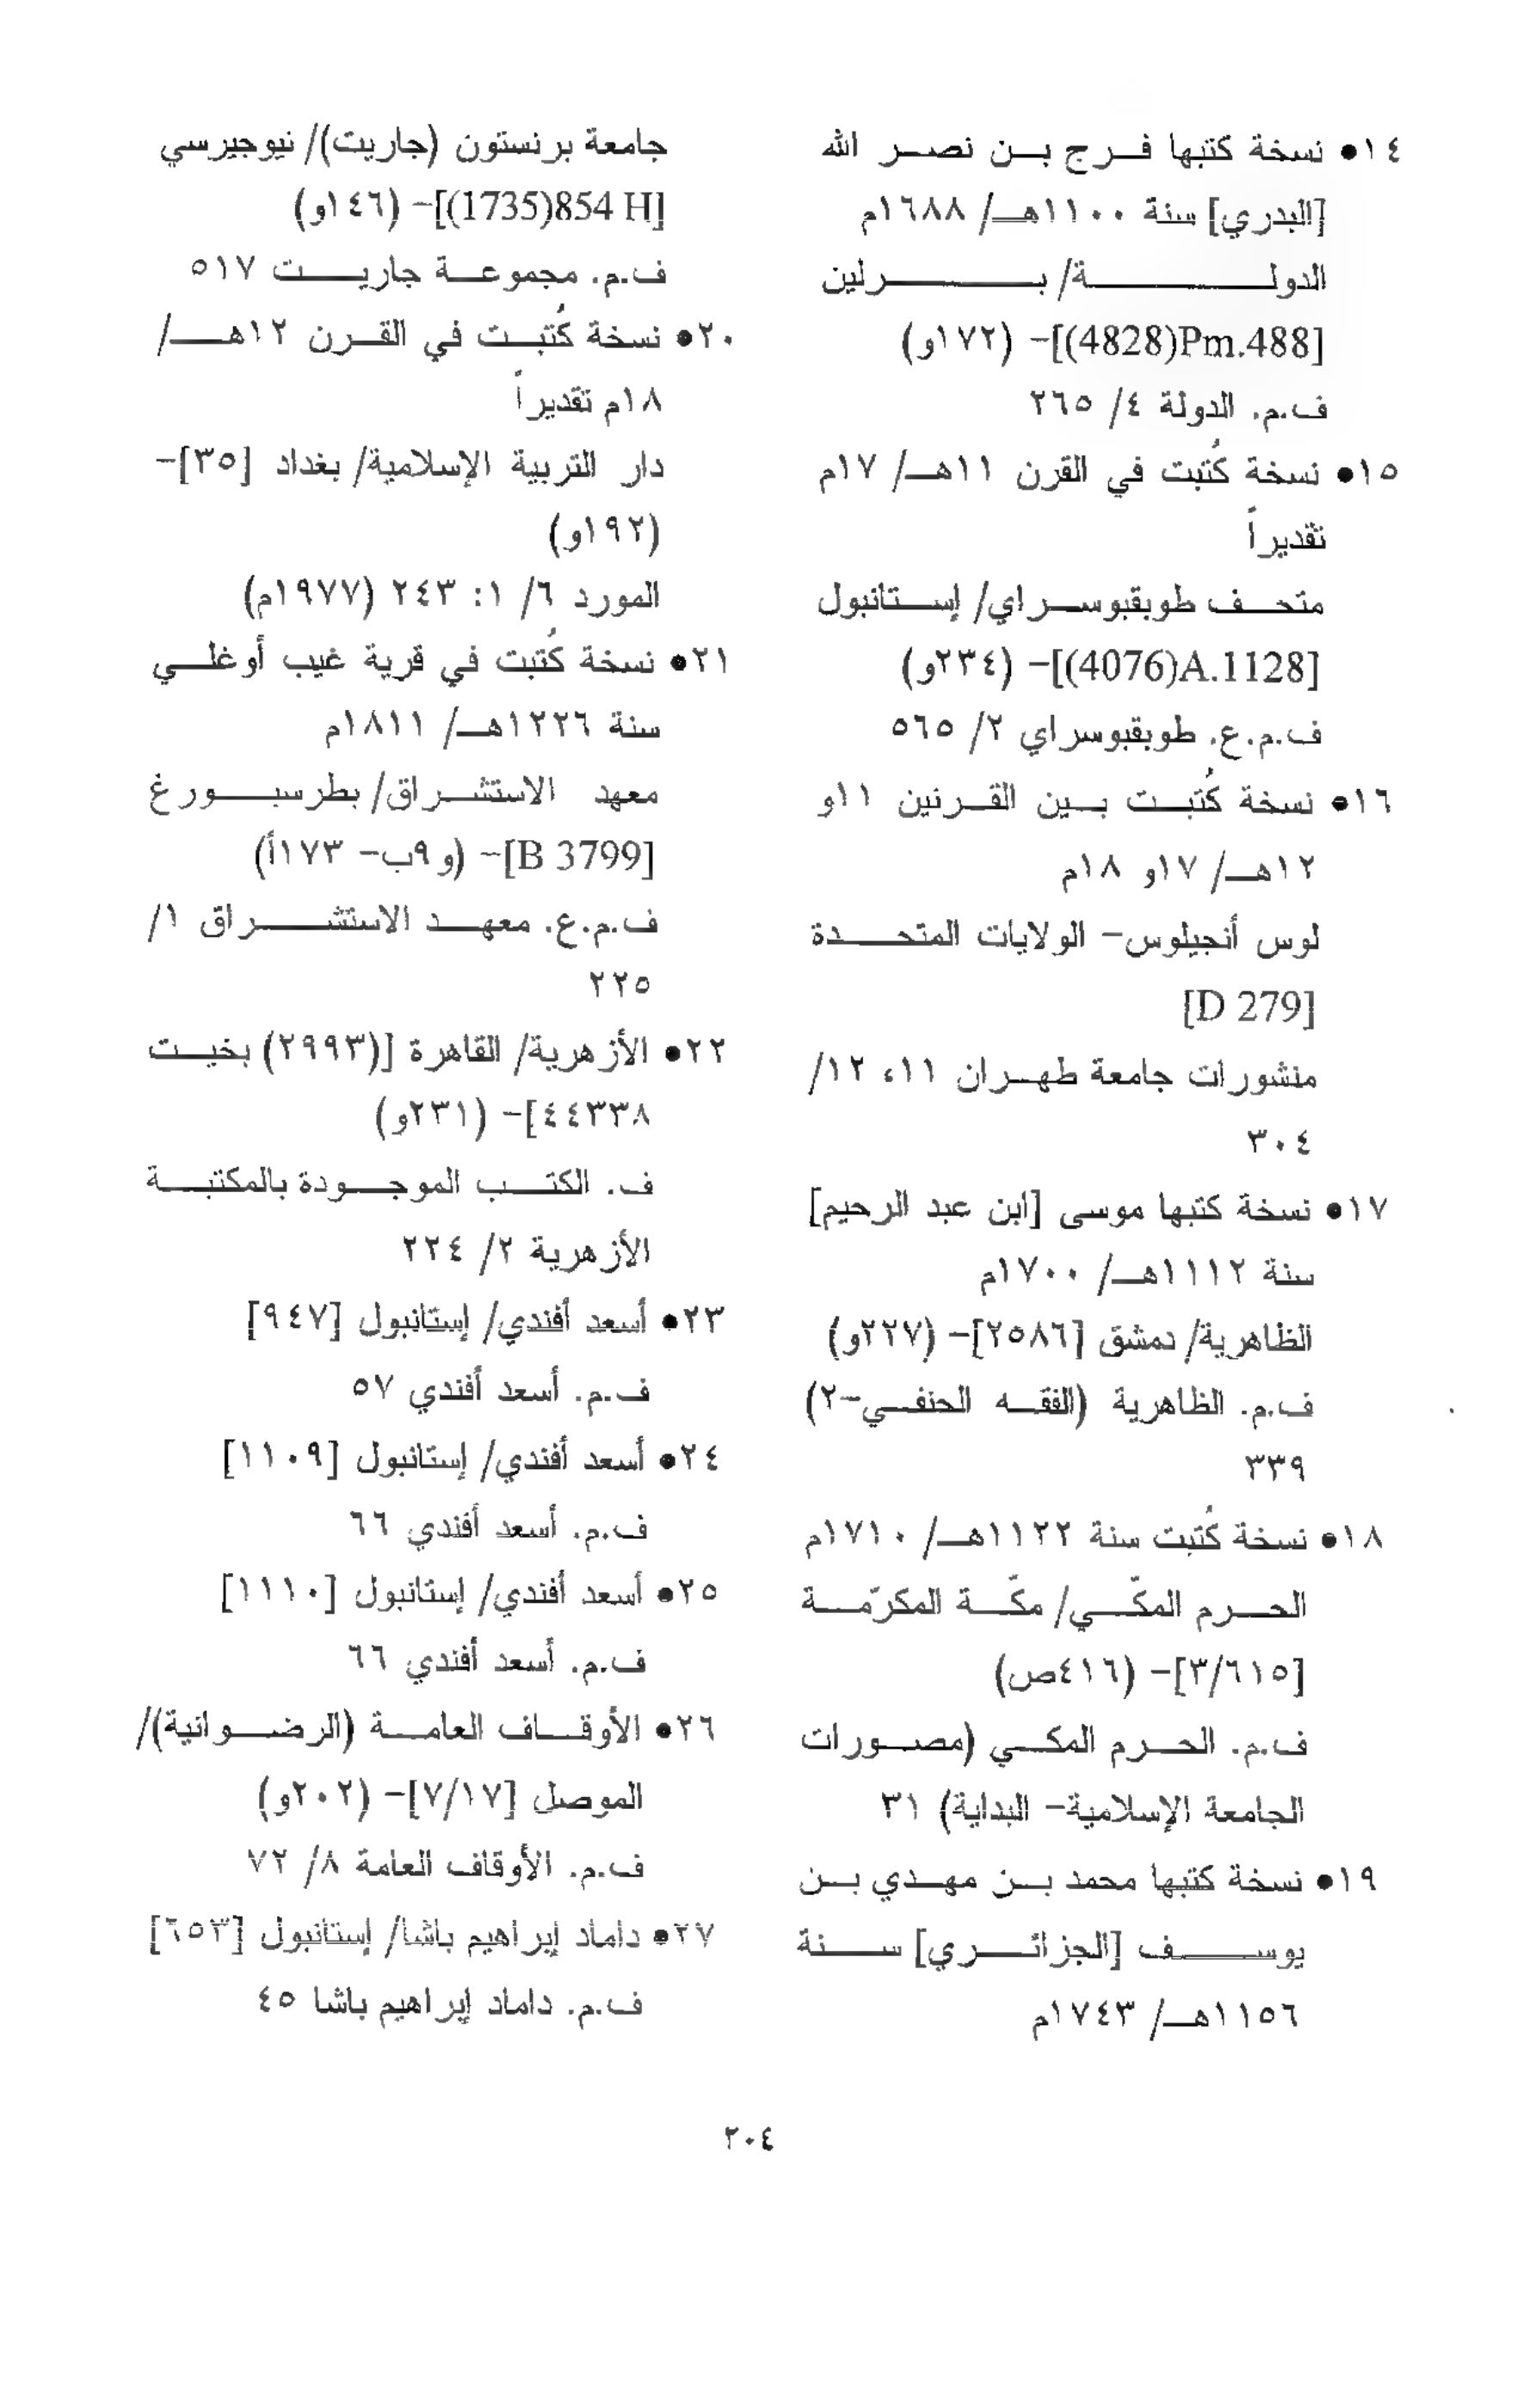 ١٤• نسخة كتبها فرج بن نصر الله
[البدري] سنة ١١٠٠هـ/ ١٦٨٨م
الدولة/ برلين
[(4828)Pm.488]- (١٧٢و)
ف.م. الدولة ٤/ ٢٦٥
١٥• نسخة كُتبت في القرن ١١هـ/ ١٧م
تقديراً
متحف طوبقبوسراي/ إستانبول
[(4076)A.1128]- (٢٣٤و)
ف.م.ع. طوبقبوسراي ٢/ ٥٦٥
١٦• نسخة كُتبت بين القرنين ١١و
١٢هـ/ ١٧و ١٨م
لوس أنجيلوس- الولايات المتحدة
[D 279]
منشورات جامعة طهران ١١، ١٢/
٣٠٤
١٧• نسخة كتبها موسى [ابن عبد الرحيم]
سنة ١١١٢هـ/ ١٧٠٠م
الظاهرية/ دمشق [٢٥٨٦]- (٢٢٧و)
ف.م. الظاهرية (الفقه الحنفي-٢)
٣٣٩
١٨• نسخة كُتبت سنة ١١٢٢هـ/ ١٧١٠م
الحرم المكّي/ مكّة المكرّمة
[٣/٦١٥]- (٤١٦ص)
ف.م. الحرم المكي (مصورات
الجامعة الإسلامية- البداية) ٣١
١٩• نسخة كتبها محمد بن مهدي بن
يوسف [الجزائري] سنة
١١٥٦هـ/ ١٧٤٣م
جامعة برنستون (جاريت)/ نيوجيرسي
[(1735)854 H]- (١٤٦و)
ف.م. مجموعة جاريت ٥١٧
٢٠• نسخة كُتبت في القرن ١٢هـ/
١٨م تقديراً
دار التربية الإسلامية/ بغداد [٣٥]-
(١٩٢و)
المورد ٦/ ١: ٢٤٣ (١٩٧٧م)
٢١• نسخة كُتبت في قرية غيب أوغلي
سنة ١٢٢٦هـ/ ١٨١١م
معهد الاستشراق/ بطرسبورغ
[B 3799]- (و٩ب- ١٧٣أ)
ف.م.ع. معهد الاستشراق ١/
٢٢٥
٢٢• الأزهرية/ القاهرة [(٢٩٩٣) بخيت
٤٤٣٣٨]- (٢٣١و)
ف. الكتب الموجودة بالمكتبة
الأزهرية ٢/ ٢٢٤
٢٣• أسعد أفندي/ إستانبول [٩٤٧]
ف.م. أسعد أفندي ٥٧
٢٤• أسعد أفندي/ إستانبول [١١٠٩]
ف.م. أسعد أفندي ٦٦
٢٥• أسعد أفندي/ إستانبول [١١١٠]
ف.م. أسعد أفندي ٦٦
٢٦• الأوقاف العامة (الرضوانية)/
الموصل [٧/١٧]- (٢٠٢و)
ف.م. الأوقاف العامة ٨/ ٧٢
٢٧• داماد إبراهيم باشا/ إستانبول [٦٥٣]
ف.م. داماد إبراهيم باشا ٤٥
٢٠٤